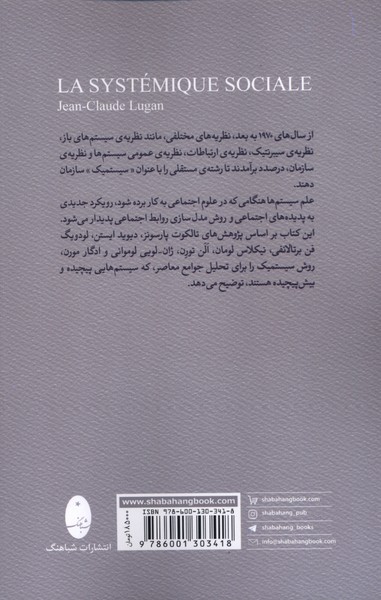 LA SYSTÉMIQUE SOCIALE
Jean-Claude Lugan
از سال‌های ۱۹۷۰ به بعد، نظریه‌های مختلفی، مانند نظریه‌ی سیستم‌های باز،
نظریه‌ی سیبرنتیک، نظریه‌ی ارتباطات، نظریه‌ی عمومی سیستم‌ها و نظریه‌ی
سازمان، درصدد برآمدند تا رشته‌ی مستقلی را با عنوان «سیستمیک» سازمان
دهند.
علم سیستم‌ها هنگامی که در علوم اجتماعی به کار برده شود، رویکرد جدیدی
به پدیده‌های اجتماعی و روش مدل سازی روابط اجتماعی پدیدار می‌شود.
این کتاب بر اساس پژوهش‌های تالکوت پارسونز، دیوید ایستن، لودویگ
فن برتالانفی، نیکلاس لومان، آلن تورن، ژان-لویی لوموانی و ادگار مورن،
روش سیستمیک را برای تحلیل جوامع معاصر، که سیستم‌هایی پیچیده و
بیش‌پیچیده هستند، توضیح می‌دهد.
انتشارات شباهنگ
www.shabahangbook.com
ISBN 978-600-130-341-8
9 786001 303418
۱۸۵۰۰۰ تومان
shabahangbook.com
shabahang_pub
shabahang_books
info@shabahangbook.com